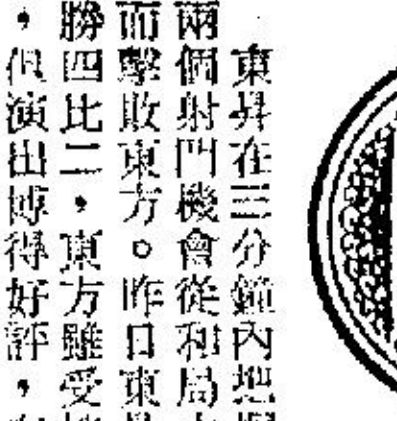 東昇在三分鐘內把
兩個射門機會從利局
而擊敗東方。昨日東
勝四比二，東方雖受
，但演出博得好評，